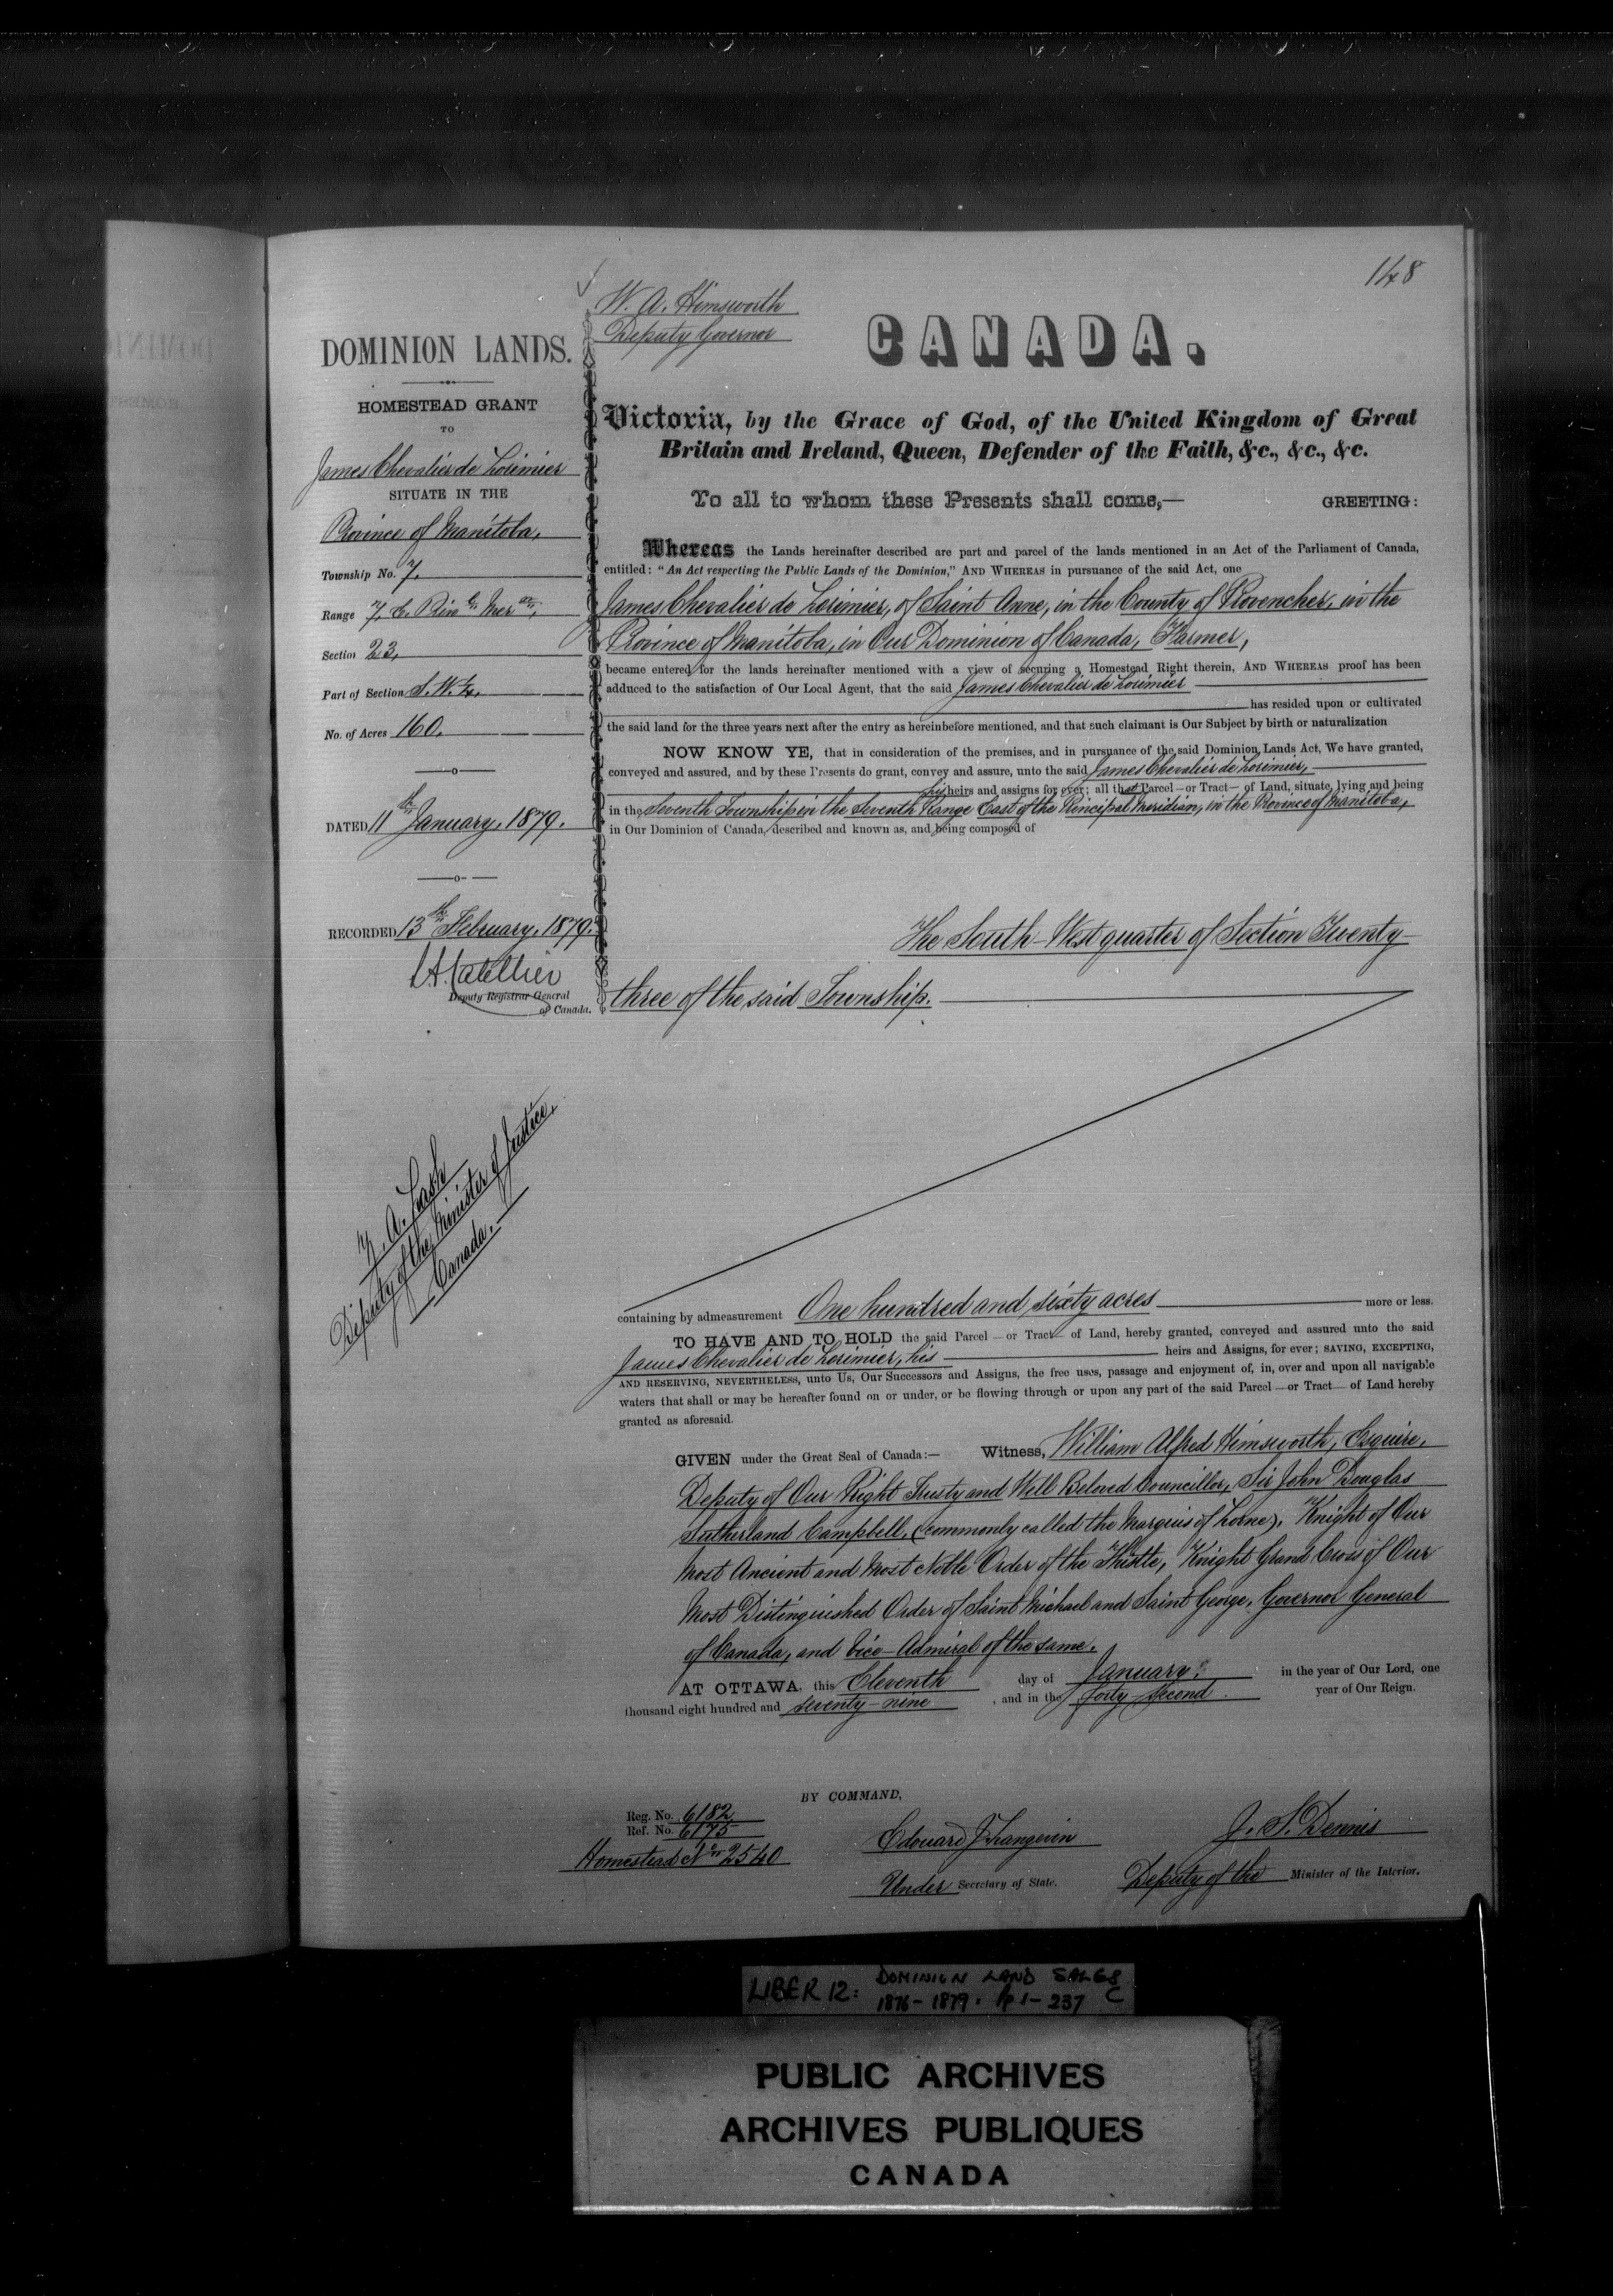 148
W. A. Himsworth
Deputy Governor
DOMINION LANDS.
HOMESTEAD GRANT
TO
James Chevalier de Lorimier
SITUATE IN THE
Province of Manitoba,
Township No. 7,
Range 7, E. Prin^l. Mer^an.,
Section 23,
Part of Section S. W. ¼,
No. of Acres 160.
DATED 11^th January, 1879.
RECORDED 13^th February, 1879.
L. A. Catellier
Deputy Registrar General
of Canada.
Z. A. Lash
Deputy of the Minister of Justice,
Canada.
CANADA.
Victoria, by the Grace of God, of the United Kingdom of Great
Britain and Ireland, Queen, Defender of the Faith, &c., &c., &c.
To all to whom these Presents shall come,— GREETING:
Whereas the Lands hereinafter described are part and parcel of the lands mentioned in an Act of the Parliament of Canada,
entitled: "An Act respecting the Public Lands of the Dominion," AND WHEREAS in pursuance of the said Act, one
James Chevalier de Lorimier, of Saint Anne, in the County of Provencher, in the
Province of Manitoba, in Our Dominion of Canada, Farmer,
became entered for the lands hereinafter mentioned with a view of securing a Homestead Right therein, AND WHEREAS proof has been
adduced to the satisfaction of Our Local Agent, that the said James Chevalier de Lorimier
has resided upon or cultivated
the said land for the three years next after the entry as hereinbefore mentioned, and that such claimant is Our Subject by birth or naturalization
NOW KNOW YE, that in consideration of the premises, and in pursuance of the said Dominion Lands Act, We have granted,
conveyed and assured, and by these Presents do grant, convey and assure, unto the said James Chevalier de Lorimier,
his heirs and assigns for ever; all that Parcel—or Tract—of Land, situate, lying and being
in the Seventh Township in the Seventh Range East of the Principal Meridian, in the Province of Manitoba,
in Our Dominion of Canada, described and known as, and being composed of
The South-West quarter of Section Twenty-
three of the said Township.
containing by admeasurement One hundred and sixty acres more or less.
TO HAVE AND TO HOLD the said Parcel—or Tract—of Land, hereby granted, conveyed and assured unto the said
James Chevalier de Lorimier, his heirs and Assigns, for ever; SAVING, EXCEPTING,
AND RESERVING, NEVERTHELESS, unto Us, Our Successors and Assigns, the free uses, passage and enjoyment of, in, over and upon all navigable
waters that shall or may be hereafter found on or under, or be flowing through or upon any part of the said Parcel—or Tract—of Land hereby
granted as aforesaid.
GIVEN under the Great Seal of Canada:— Witness, William Alfred Himsworth, Esquire,
Deputy of Our Right Trusty and Well Beloved Councillor, Sir John Douglas
Sutherland Campbell, (commonly called the Marquis of Lorne), Knight of Our
Most Ancient and Most Noble Order of the Thistle, Knight Grand Cross of Our
Most Distinguished Order of Saint Michael and Saint George, Governor General
of Canada, and Vice-Admiral of the same.
AT OTTAWA, this Eleventh day of January, in the year of Our Lord, one
thousand eight hundred and seventy-nine, and in the forty second year of Our Reign.
BY COMMAND,
Reg. No. 6182
Ref. No. 6175
Homestead N° 2540
Edouard J Langevin
Under Secretary of State.
J. S. Dennis
Deputy of the Minister of the Interior.
LIBER 12: DOMINION LAND SALES
1876-1879. pp 1-237 C
PUBLIC ARCHIVES
ARCHIVES PUBLIQUES
CANADA